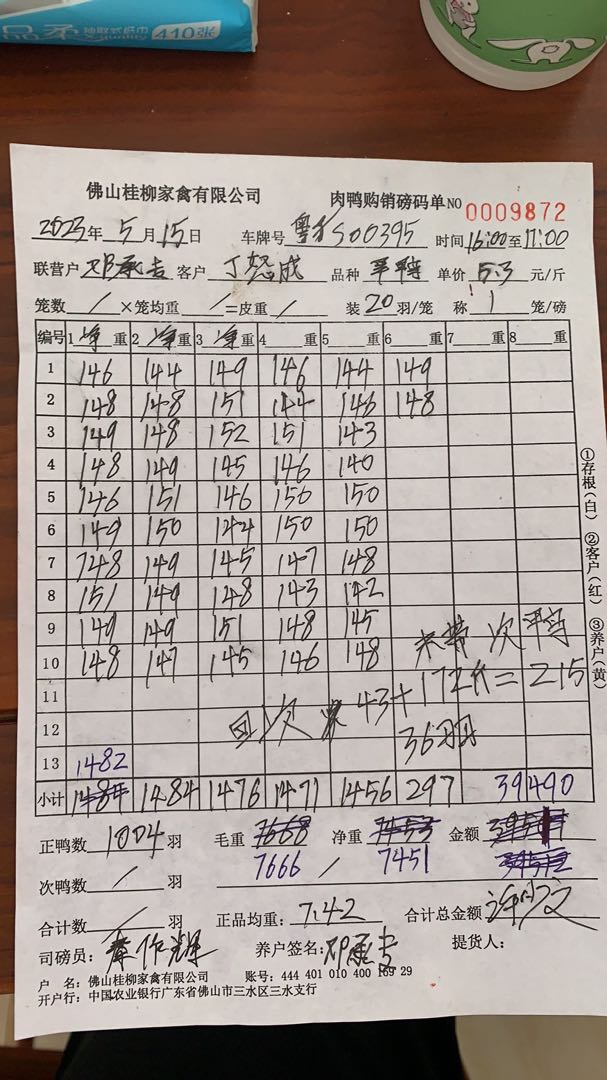 抽取式纸巾
410张
佛山桂柳家禽有限公司 肉鸭购销磅码单 NO 0009872
2023年 5月 15日 车牌号 S00395 时间 16:00至17:00
联营户 邓承吉 客户 丁怒成 品种 单价 5.3 元/斤
笼数 / ×笼均重 / =皮重 / 装 20 羽/笼 称 1 笼/磅
编号 1 净重 2 净重 3 净重 4 重 5 重 6 重 7 重 8 重
1 146 144 149 146 144 149
2 148 148 151 144 146 148
3 149 148 152 151 143
4 148 149 145 146 140
5 146 151 146 150 150
6 149 150 144 150 150
7 148 149 145 147 148
8 151 149 148 143 142
9 149 149 151 148 145
10 148 147 145 146 148
11 回次 43+172斤=215
12 36羽
13 1482
小计 1484 1484 1476 1471 1456 297 39490
正鸭数 1004 羽 毛重 7668 净重 7453 金额
7666 / 7451
次鸭数 / 羽
合计数 / 羽 正品均重: 7.42 合计总金额
司磅员: 养户签名: 邓承吉 提货人:
户 名: 佛山桂柳家禽有限公司 账号: 444 401 010 400 169 29
开户行: 中国农业银行广东省佛山市三水区三水支行
①存根(白) ②客户(红) ③养户(黄)